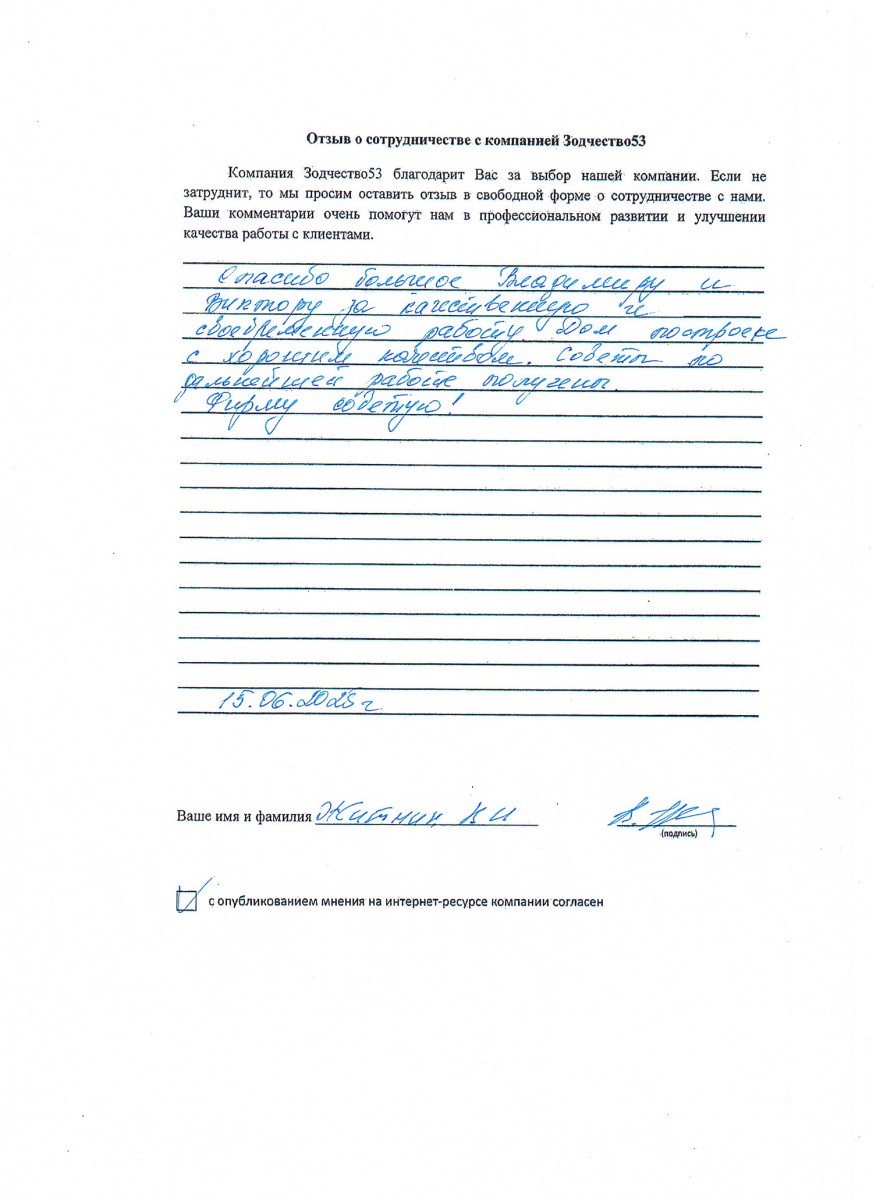 Отзыв о сотрудничестве с компанией Зодчество53
Компания Зодчество53 благодарит Вас за выбор нашей компании. Если не
затруднит, то мы просим оставить отзыв в свободной форме о сотрудничестве с нами.
Ваши комментарии очень помогут нам в профессиональном развитии и улучшении
качества работы с клиентами.
Спасибо большое Владимиру и
Виктору за качественную и
своевременную работу. Дом построен
с хорошим качеством. Советы по
дальнейшей работе получены.
Фирму советую!
15.06.2025 г
Ваше имя и фамилия Житник В И
(подпись)
с опубликованием мнения на интернет-ресурсе компании согласен